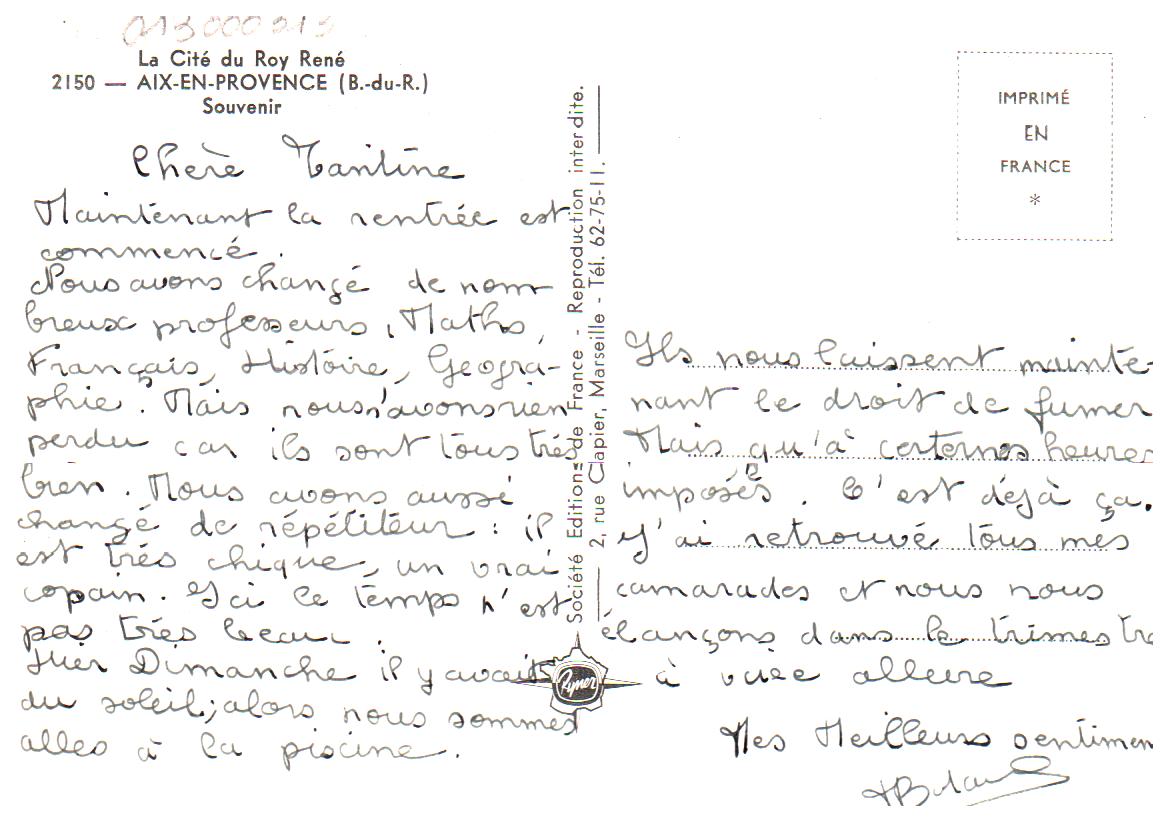 013000313
La Cité du Roy René
2150 — AIX-EN-PROVENCE (B.-du-R.)
Souvenir
Chère Tantine
Maintenant la rentrée est
commencé.
Nous avons changé de nom-
breux professeurs, Maths,
Français, Histoire, Geogra-
phie. Mais nous n'avons rien
perdu car ils sont tous très
bien. Nous avons aussi
changé de répétiteur : il
est très chique, un vrai
copain. Ici le temps n'est
pas très beau.
Hier Dimanche il y avait
du soleil; alors nous sommes
alles à la piscine.
Société Editions de France - Reproduction interdite.
2, rue Clapier, Marseille - Tél. 62-75-11.
Rymer
IMPRIMÉ
EN
FRANCE
*
Ils nous laissent mainte-
nant le droit de fumer
Mais qu'à certernes heures
imposés. C'est déjà ça.
J'ai retrouvé tous mes
camarades et nous nous
élançons dans le trimestre
à vive allure
Mes Meilleurs sentimen